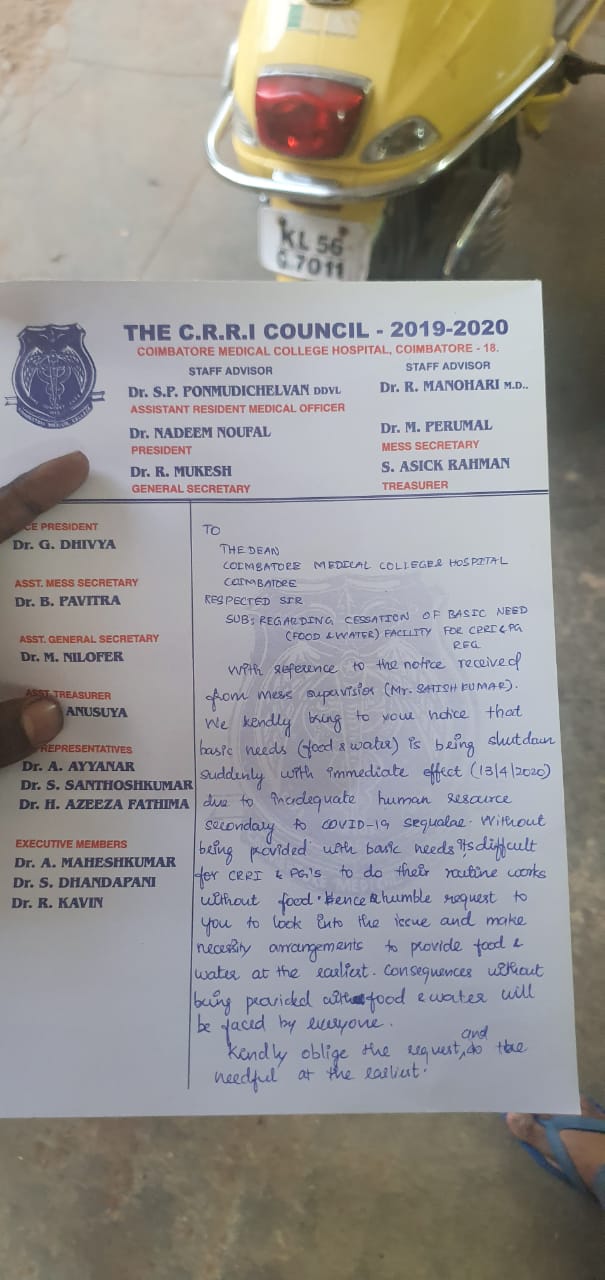 KL 56
G.7011
THE C.R.R.I COUNCIL - 2019-2020
COIMBATORE MEDICAL COLLEGE HOSPITAL, COIMBATORE - 18.
STAFF ADVISOR
Dr. S.P. PONMUDICHELVAN DDVL
ASSISTANT RESIDENT MEDICAL OFFICER
STAFF ADVISOR
Dr. R. MANOHARI M.D..
Dr. NADEEM NOUFAL
PRESIDENT
Dr. M. PERUMAL
MESS SECRETARY
Dr. R. MUKESH
GENERAL SECRETARY
S. ASICK RAHMAN
TREASURER
CE PRESIDENT
Dr. G. DHIVYA
ASST. MESS SECRETARY
Dr. B. PAVITRA
ASST. GENERAL SECRETARY
Dr. M. NILOFER
ASST. TREASURER
ANUSUYA
REPRESENTATIVES
Dr. A. AYYANAR
Dr. S. SANTHOSHKUMAR
Dr. H. AZEEZA FATHIMA
EXECUTIVE MEMBERS
Dr. A. MAHESHKUMAR
Dr. S. DHANDAPANI
Dr. R. KAVIN
TO
THE DEAN
COIMBATORE MEDICAL COLLEGE & HOSPITAL
COIMBATORE
RESPECTED SIR
SUB: REGARDING CESSATION OF BASIC NEED
(FOOD & WATER) FACILITY FOR CRRI & PG
REG
With reference to the notice received
from mess supervisior (Mr. SATISH KUMAR).
We kendly bring to your notice that
basic needs (food & water) is being shutdown
suddenly with immediate effect (13/4/2020)
due to inadequate human resource
secondary to COVID-19 sequalae. Without
being provided with basic needs, its difficult
for CRRI & PG's to do their routine works
without food. Hence a humble request to
you to look into the issue and make
necessity arrangements to provide food &
water at the earliest. Consequences without
being provided with food & water will
be faced by everyone.
Kendly oblige the request, and do the
needful at the earliest.